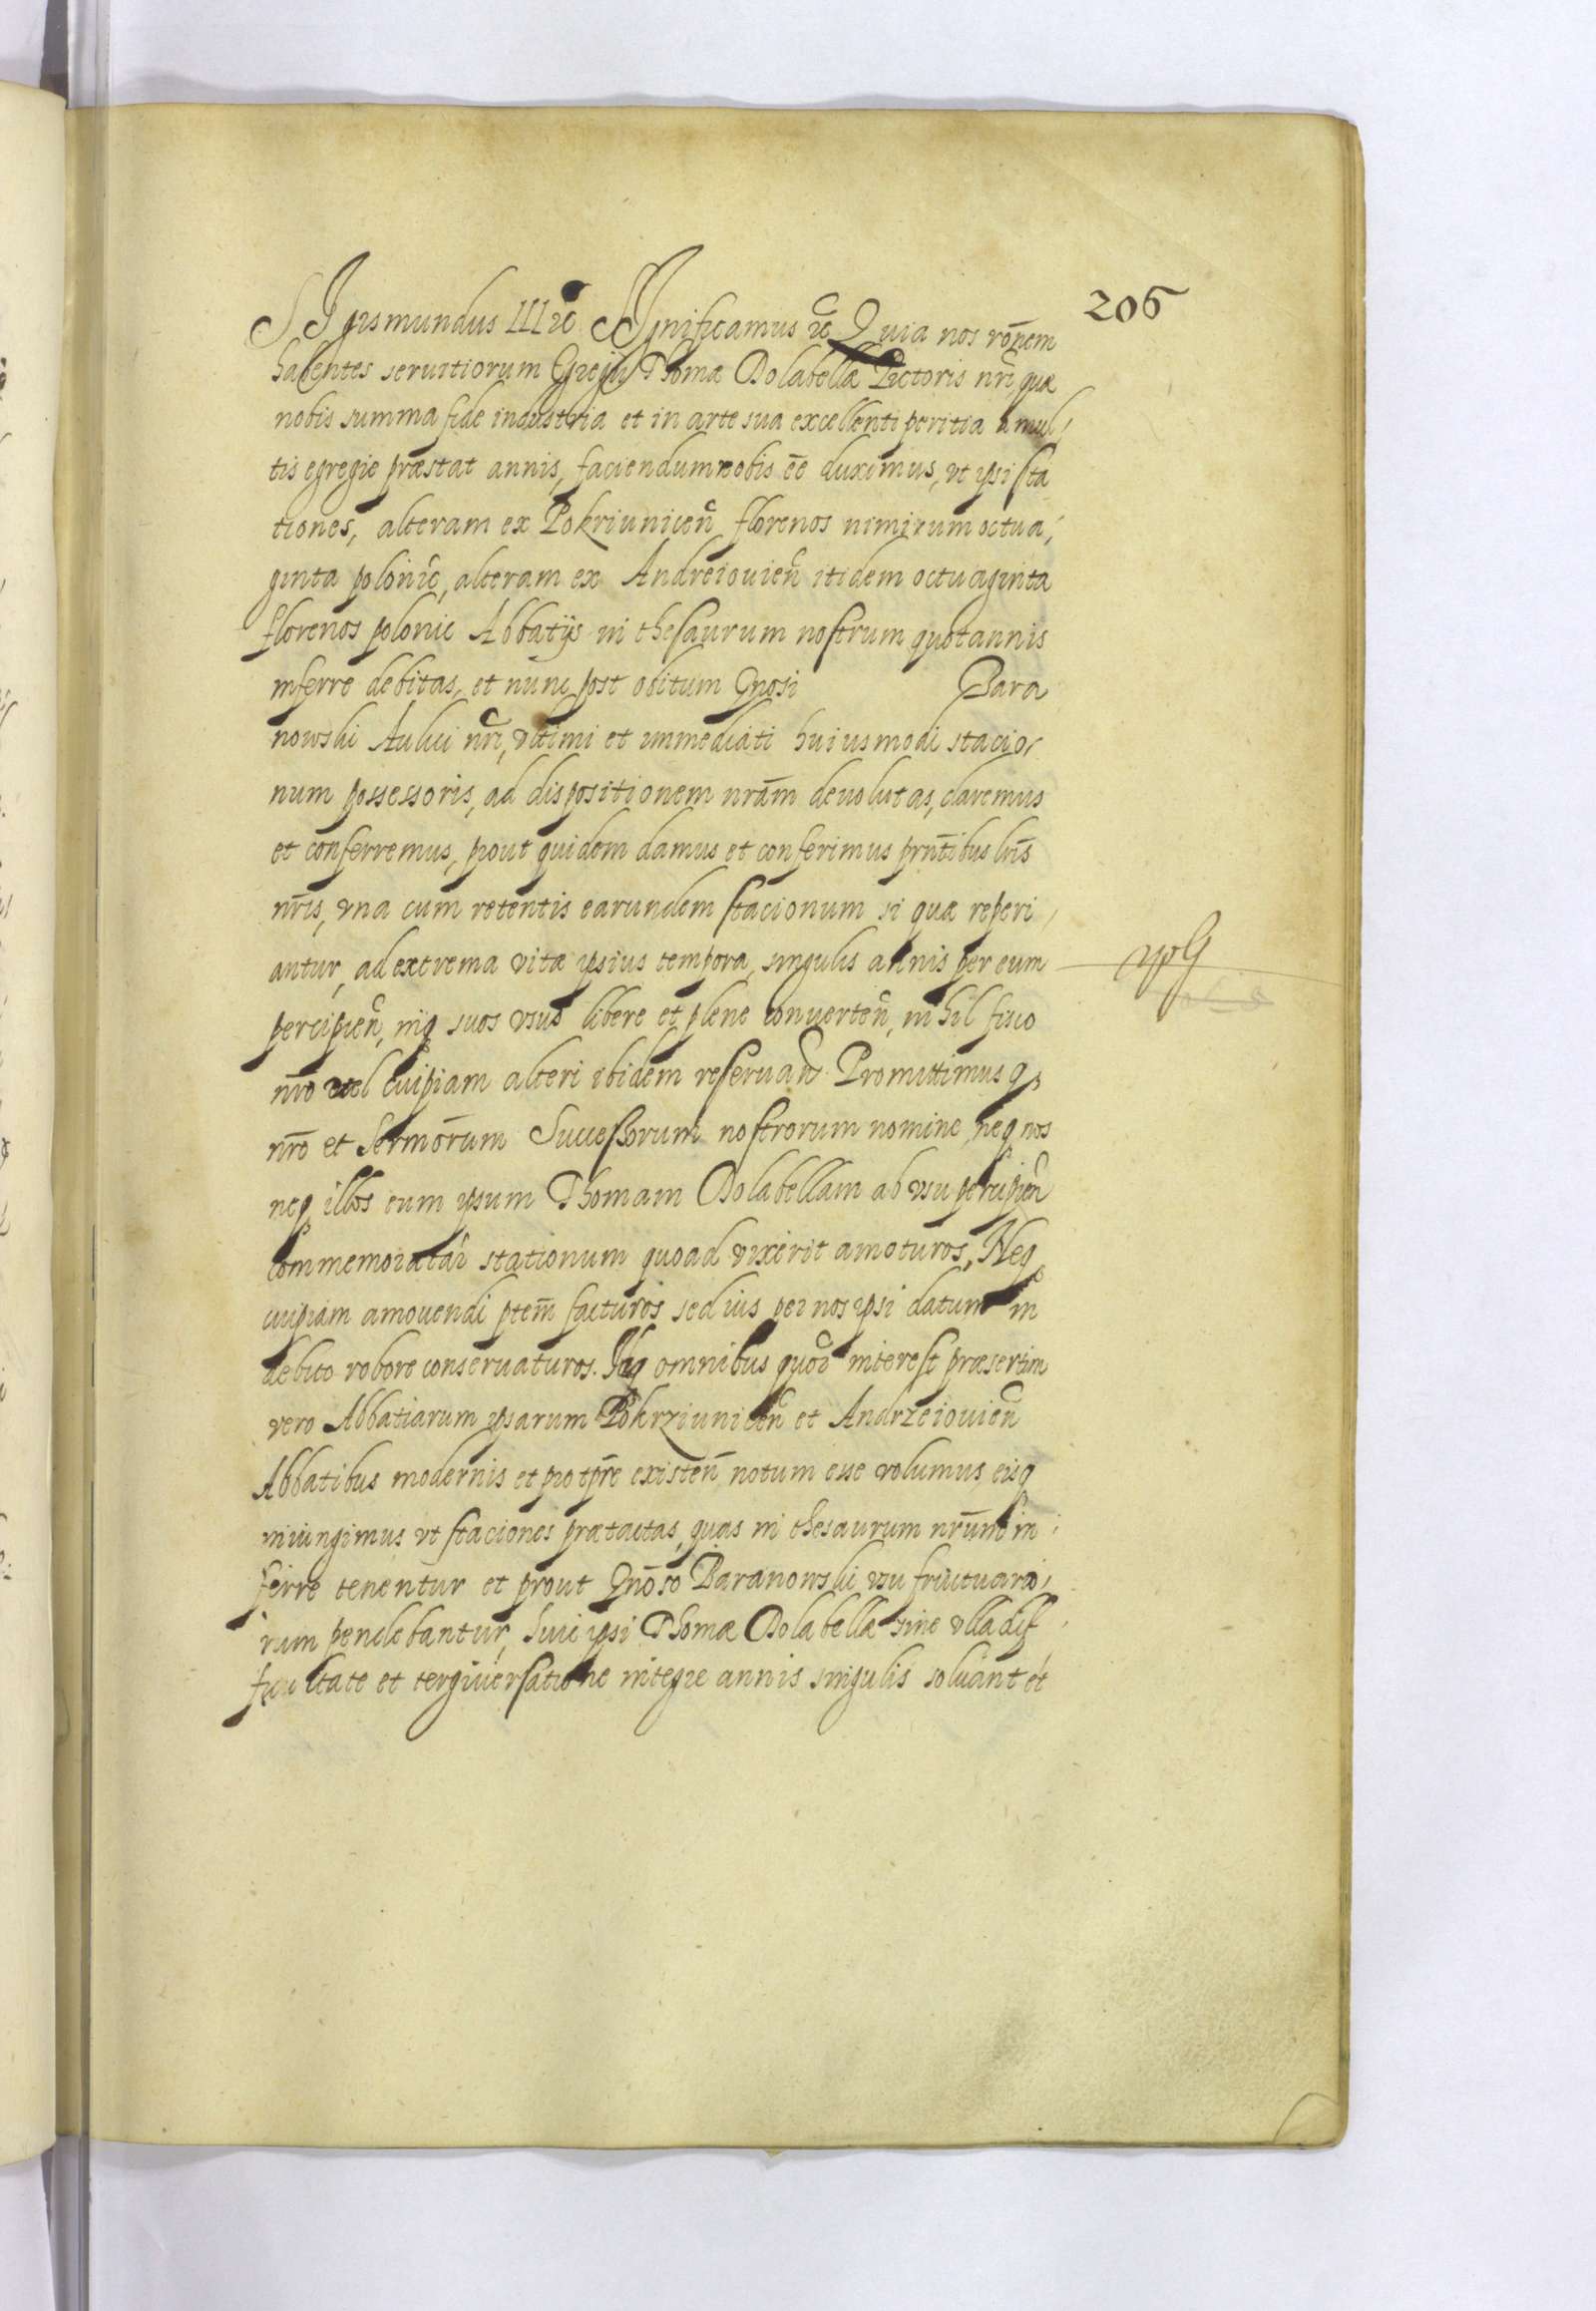 206
SIgismundus III ꝛc SIgnificamus ꝛc Quia nos rōnem
habentes seruitiorum Egregij Thomæ Dolabellæ Pictoris nri, quæ
nobis summa fide industria et in arte sua excellenti peritia a mul
tis egregie præstat annis, faciendum nobis ēē duximus, vt ipsi sta
tiones, alteram ex Pokriuniceñ florenos nimirum octua
ginta polonic, alteram ex Andreiouieñ itidem octuaginta
florenos polonic Abbatijs in thesaurum nostrum quotannis
inferre debitas, et nunc post obitum Gnosi Bara
nowski Aulici nri, vltimi et immediati huiusmodi stacio
num possessoris, ad dispositionem nrām deuolutas, daremus
et conferremus, prout quidem damus et conferimus prntibus lris
nris, vna cum retentis earundem stacionum si quæ reperi
antur, ad extrema vitæ ipsius tempora, singulis annis per eum
percipieñ, inq suos vsus libere et plene conuerteñ, nihil fisco
nro vel cuipiam alteri ibidem reseruañ. Promittimusq
nro et Sermorum Successorum nostrorum nomine, neq nos
neq illos eum ipsum Thomam Dolabellam ab vsu percipieñ
commemoratar stationum quoad vixerit amoturos, Neq
cuipiam amouendi ptem facturos sed ius per nos ipsi datum in
debito robore conseruaturos. Idq omnibus quor interest præsertim
vero Abbatiarum ipsarum Pokrziuniceñ et Andrzeiouieñ
Abbatibus modernis et pro tpre existeñ notum esse volumus, eisq
iniungimus vt staciones prætactas, quas in thesaurum nrum in
ferre tenentur et prout Gnoso Baranowski vsu fructuario
rum pendebantur, huic ipsi Thomæ Dolabellæ sine vlla dif
ficultate et tergiuersatione integre annis singulis soluant et